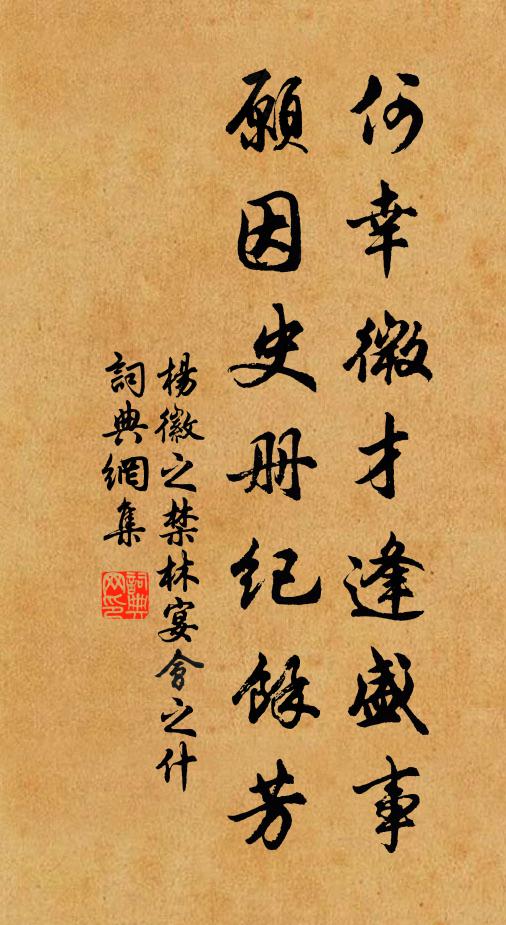 何幸微才逢盛事
願因史册纪餘芳
楊徽之禁林宴會之什
詞典網集
詞典网印